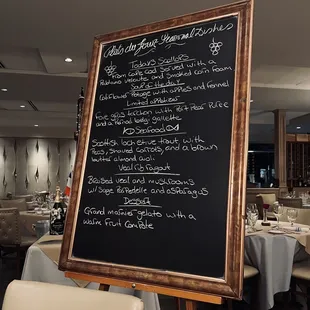 Plats du Jour Seasonal Dishes
Todays Scallops
From Cape Cod Served with a
Romano Veloute and Smoked Corn Foam
Soup of the day
Cauliflower Potage with apples and fennel
Limited apparition
Foie gras torchon with Port Pear Puree
and a Raised berry galette
Seafood
Scottish loch etive trout with
Peas, Shaved Carrots, and a brown
butter almond Aioli
Veal rib ragout
Braised veal and mushrooms
w/ Sage Pappardelle and asparagus
Dessert
Grand marnier gelato with a
Warm Fruit Compote